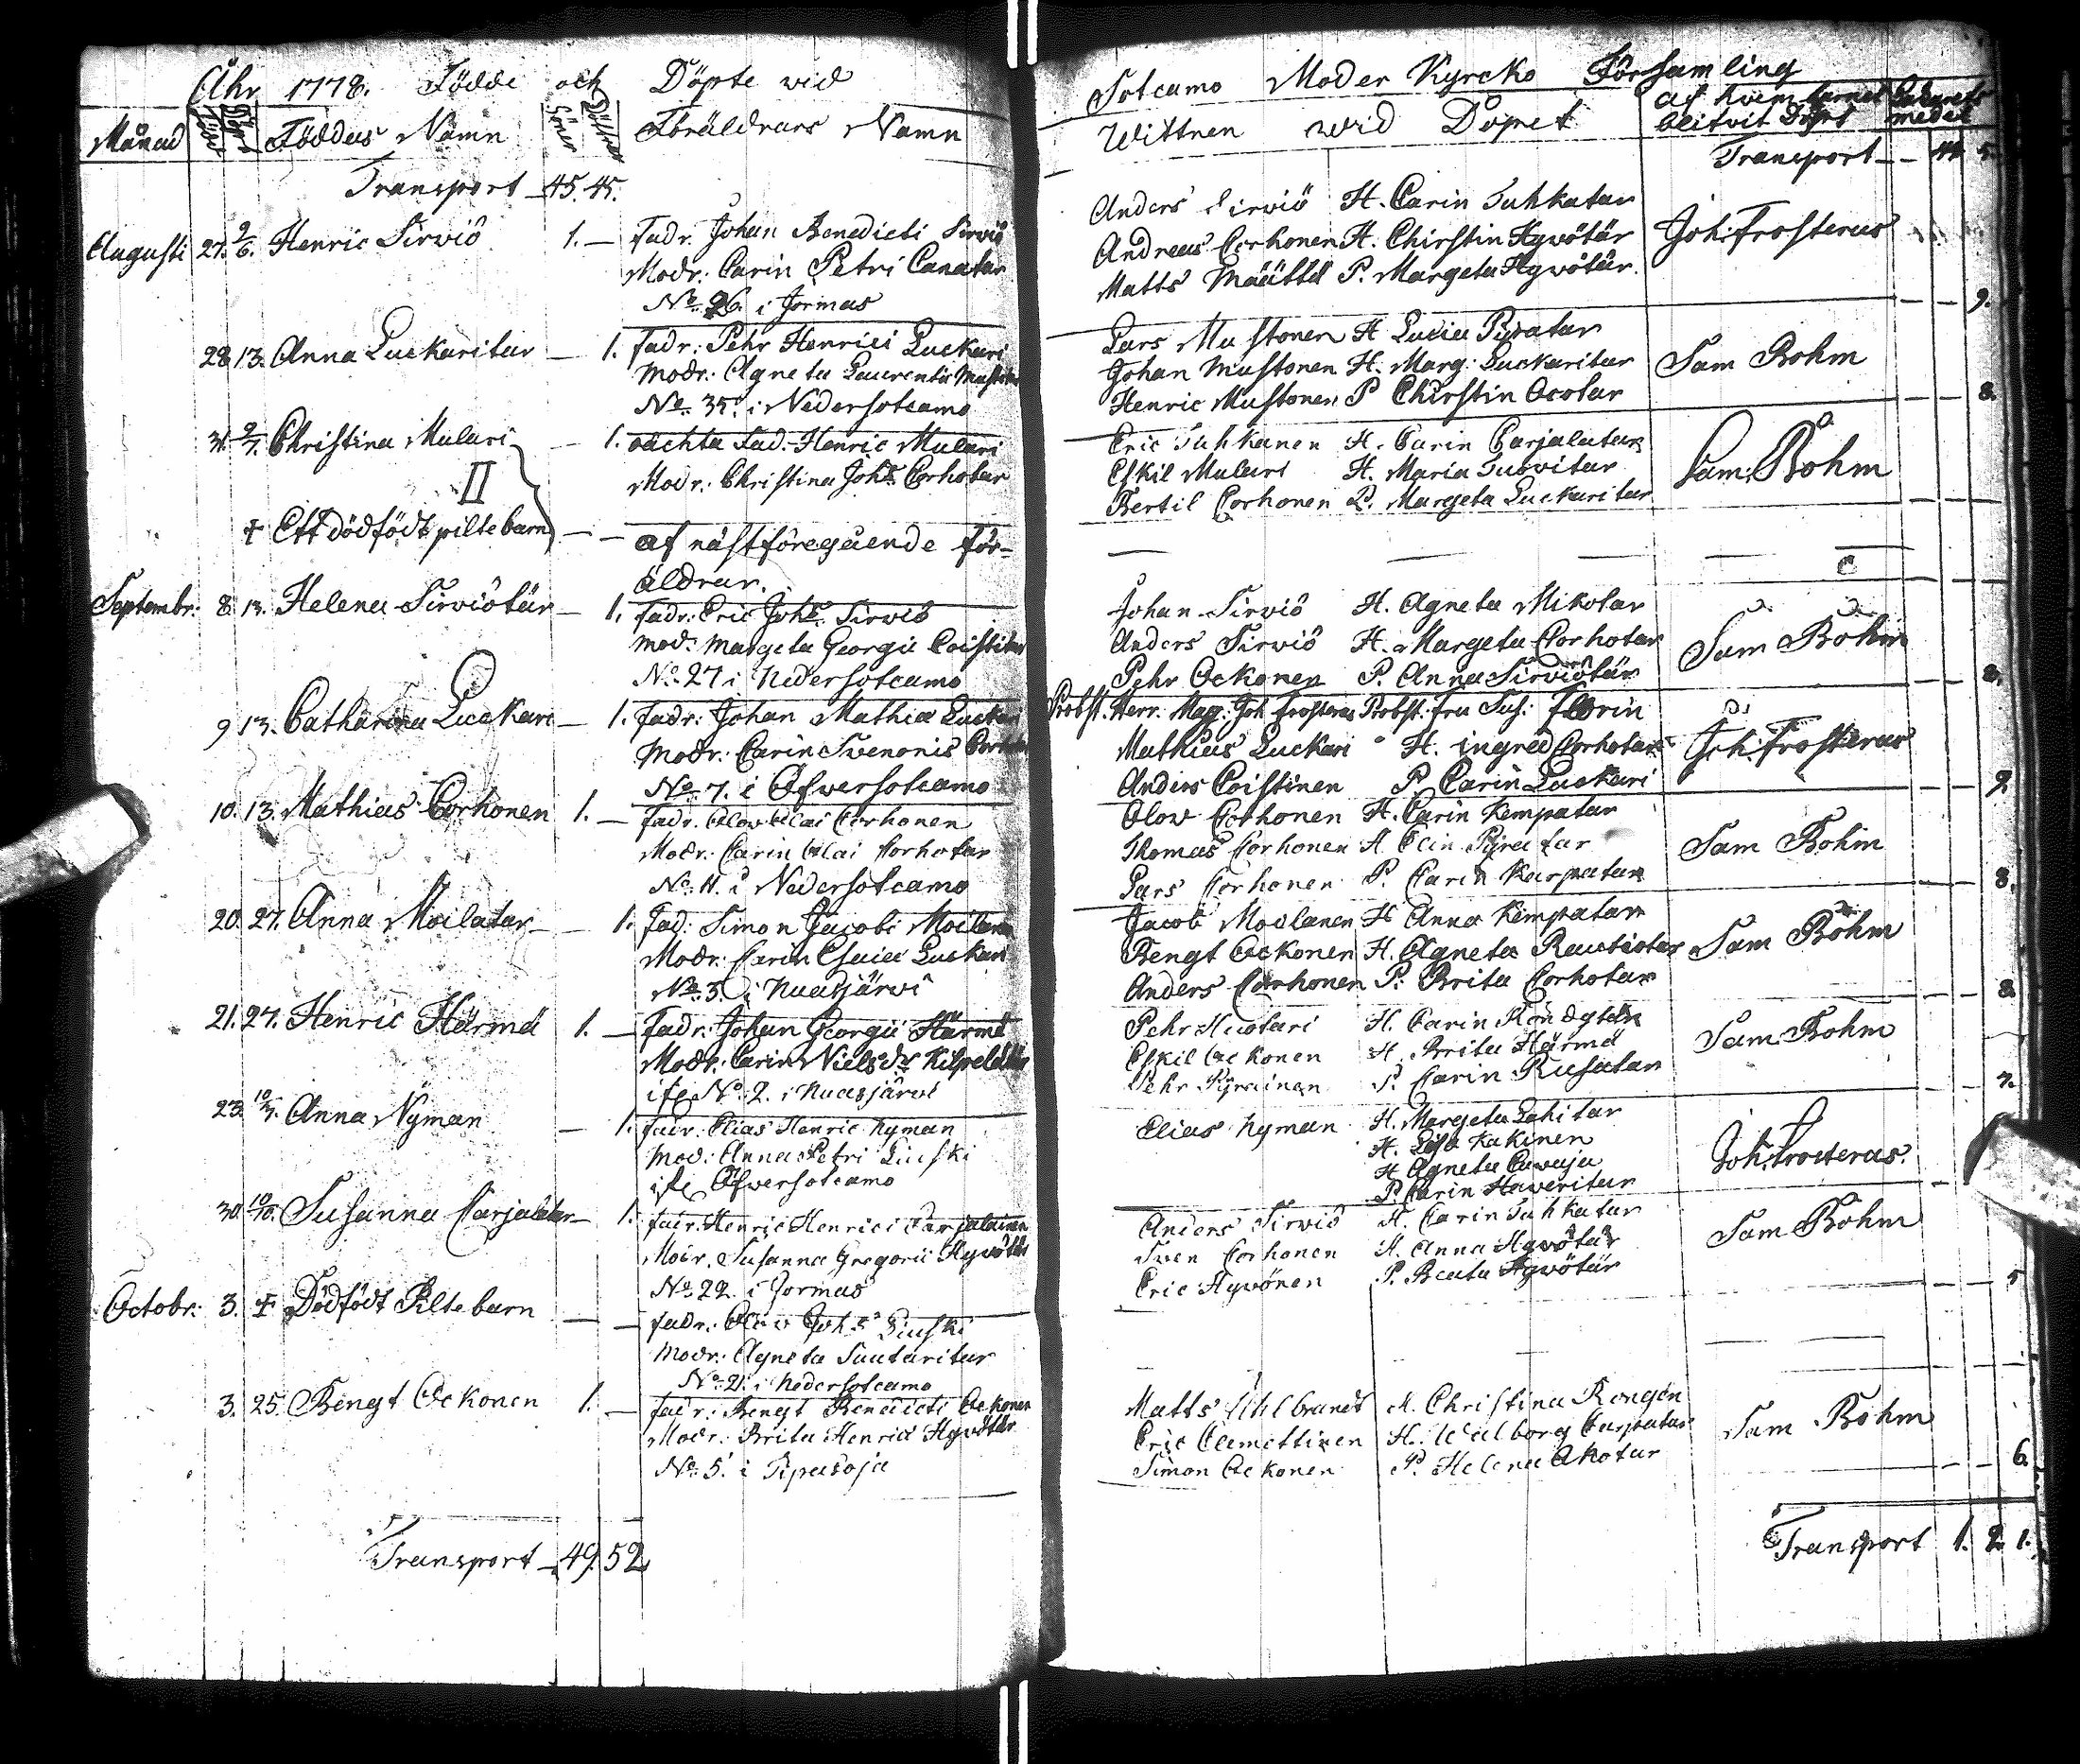 Åhr 1778. Födde och Döpte wid
Månad Född Döpt Föddas Namn Söner Döttrar Föräldrars Namn
Transport 45. 45.
Augusti 27. 9/6. Henric Sirviö 1. — Fadr. Johan Benedicti Sirviö
Modr: Carin Petri Canatar
No. 26. i Jormas
28. 13. Anna Luckaritar — 1. Fadr: Pehr Henrici Luckari
Modr: Agneta Laurentii
No. 35. i Nedersotcamo
31. 9/7. Christina Mulari — 1. oächta Fad. Henric Mulari
II Modr: Christina Joh: Corhotar
‡ Ett dödfödt piltebarn — — af nästföregående för-
äldrar.
Septembr: 8. 13. Helena Sirviötär — 1. Fadr: Eric Joh: Sirviö
Mod: Margeta Georgii Coistitar
No. 27 i Nedersotcamo
9 13. Catharina Luckari — 1. Fadr: Johan Mathiæ Luckari
Modr: Carin Svenonis
No. 7. i Öfwersotcamo
10. 13. Mathias Corhonen 1. — Fadr. Olov Olai Corhonen
Modr: Carin Olai Corhotar
No. 11. i Nedersotcamo
20. 27. Anna Moilatar — 1. Fad: Simon Jacobi Moilanen
Modr: Carin Esaiæ Luckari
No. 3. i Nuasjärwi
21. 27. Henric Härmä 1. — Fadr: Johan Georgii Härmä
Modr: Carin Nielsdr
No. 2. i Nuasjärvi
23. 10/4. Anna Nyman — 1. Fadr: Elias Henric Nyman
Mod: Anna Petri Liuski
Öfwersotcamo
30. 10/10. Susanna Carjalatar — 1. Fadr. Henric Henrici Carjalainen
Modr. Susanna Gregorii Hyvötär
No. 22. i Jormas
Octobr: 3. ‡ Dödfödt Piltebarn — — Fadr: Olov Joh: Liuski
Modr: Agneta Suutaritar
No. 21. i Nedersotcamo
3. 25. Bengt Ockonen 1. — Fadr: Bengt Benedicti Ockonen
Modr: Brita Henrici Hyvötär
No. 5. i Tipasoja
Transport 49. 52
Sotcamo Moder Kyrcko Församling
Wittnen wid Döpet af hvem barnet blifvit Döpt
Transport — 44 5.
Anders Sirviö H. Carin Tuhkatar
Andreas Corhonen H. Chirstin Hyvötär Joh: Frosterus
Matts Määttä P. Margeta Hyvötär. 9.
Lars Mustonen H Lucia Pyratar
Johan Mustonen H. Marg: Luckaritar Sam Bohm
Henric Mustonen P Chirstin Ocotar 8.
Eric Tuhkanen H. Carin Carjalatar
Eskil Mulari H. Maria Suovitar Sam: Bohm
Bertil Corhonen P. Margeta Luckaritar
Johan Sirviö H. Agneta Mikotar
Anders Sirviö H. Margeta Corhotar Sam Böhm
Pehr Ockonen P. Anna Sirviötär 8.
Probst. Herr. Mag: Joh Frosterus Probst. Fru Sus: Florin
Mathias Luckari H. ingred Corhotar Joh: Frosterus
Anders Coistinen P. Carin Luckari 9.
Olow Corhonen H. Carin Kempatar
Thomas Corhonen H. Elin Pyratar Sam Bohm
Lars Corhonen P. Carin Karpatar 8.
Jacob Moilanen H Anna Kempatar
Bengt Ockonen H. Agneta Rautiotar Sam Böhm
Anders Corhonen P. Brita Corhotar 8.
Pehr Huotari H. Carin
Eskil Ockonen H. Brita Härmä Sam Bohm
Pehr P. Carin Rusatar 7.
Elias Nyman H. Margeta Lahitar
H. Lisa Kakinen
H Agneta Cawaja Joh: Frosterus.
P. Carin Haweritar
Anders Sirviö H. Carin Tuhkatar
Sven Corhonen H. Anna Hyvötär Sam Bohm
Eric Hyvönen P. Beata Hyvötär 5
Matts H. Christina
Eric Clemettinen H. Walborg Carpatar Sam Bohm
Simon Ockonen P. Helena Akotar 6.
Transport 1. 2. 1.